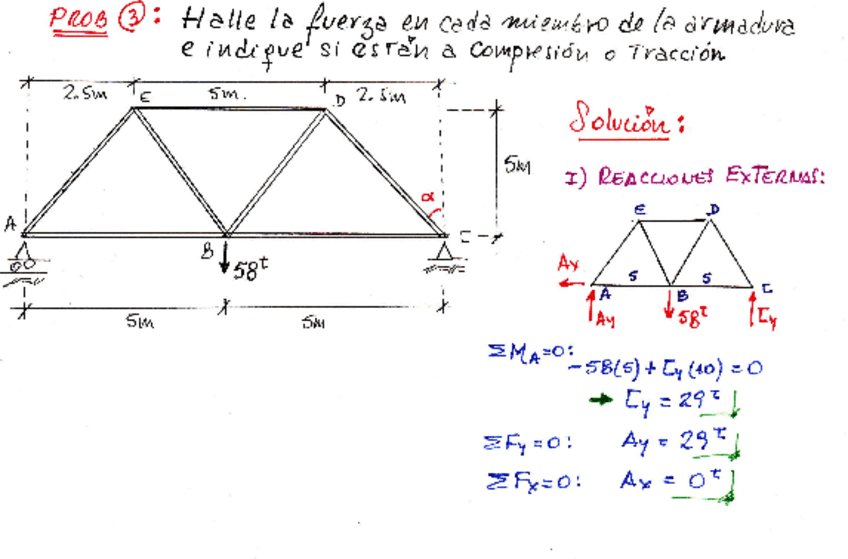 PROB ③: Halle la fuerza en cada miembro de la armadura
e indique si están a compresión o Tracción
2.5m 5m. 2.5m
E D
5m
α
A B C
58ᵗ
5m 5m
Solución:
I) REACCIONES EXTERNAS:
E D
Ax 5 5
A B C
Ay 58ᵗ Cy
ΣMA=0:
-58(5)+Cy(10)=0
→ Cy = 29ᵗ
ΣFy=0: Ay = 29ᵗ
ΣFx=0: Ax = 0ᵗ